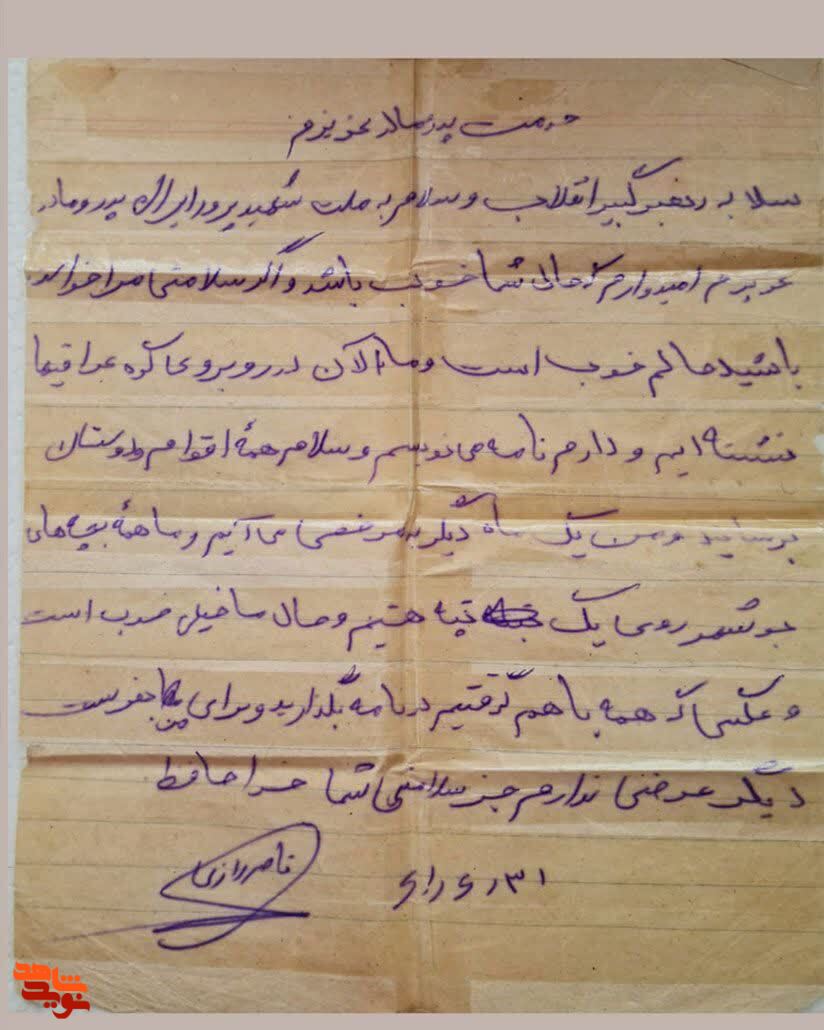 خدمت پدر و مادر عزیزم
سلام به رهبر کبیر انقلاب و سلام به ملت شهید پرور ایران پدر و مادر
عزیزم امیدوارم که حالی شما خوب باشد و اگر سلامتی مرا خواسته
باشید حالم خوب است و ما الان در روبروی عراقیها
نشسته ایم و دارم نامه می نویسم و سلام همهٔ اقوام و دوستان
برسانید و من یک ماه دیگر به مرخصی می آیم و ما همهٔ بچه های
روی یک تپه هستیم و حال ما خیلی خوب است
و عکسی که همه با هم گرفتیم در نامه بگذارید و برای بفرست
دیگر عرضی ندارم جز سلامتی شما خدا حافظ
ناصر رازی
شاهد
نوید